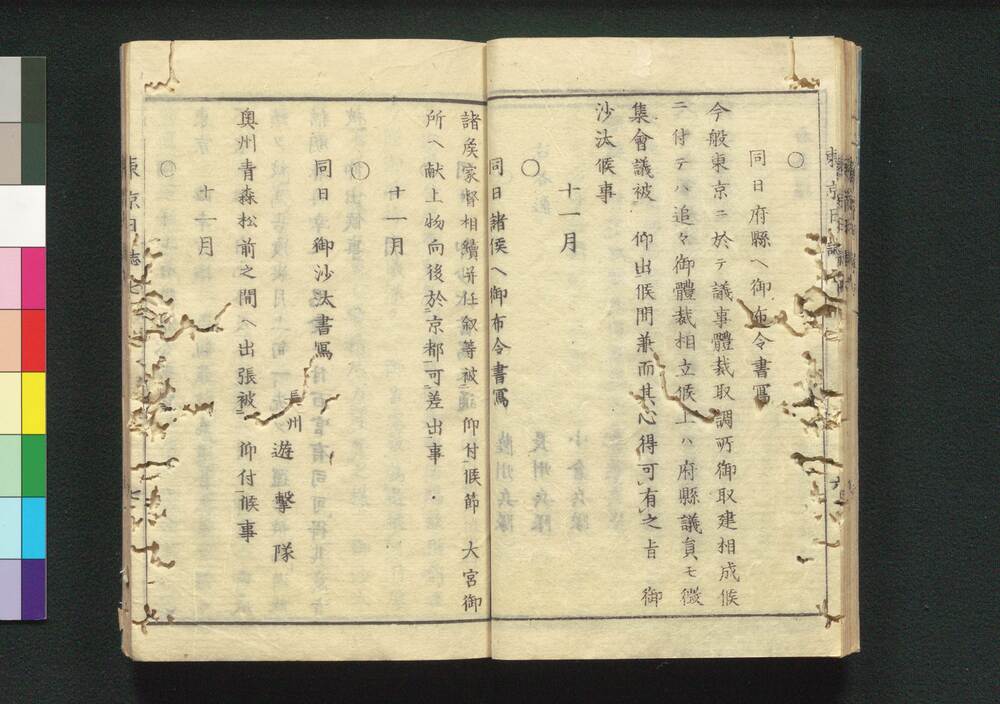 〇
同日府縣ヘ御布令書寫
今般東京ニ於テ議事體裁取調所御取建相成候
ニ付テハ追々御體裁相立候上ハ府縣議員モ徴
集會議被 仰出候間兼而其心得可有之旨 御
沙汰候事
十一月
〇
同日諸侯ヘ御布令書寫
諸侯家督相續并任叙等被 仰付候節 大宮御
所ヘ献上物向後於京都可差出事
十一月
〇
同日御沙汰書寫
長州遊撃隊
奥州青森松前之間ヘ出張被 仰付候事
十一月
〇
東京日誌